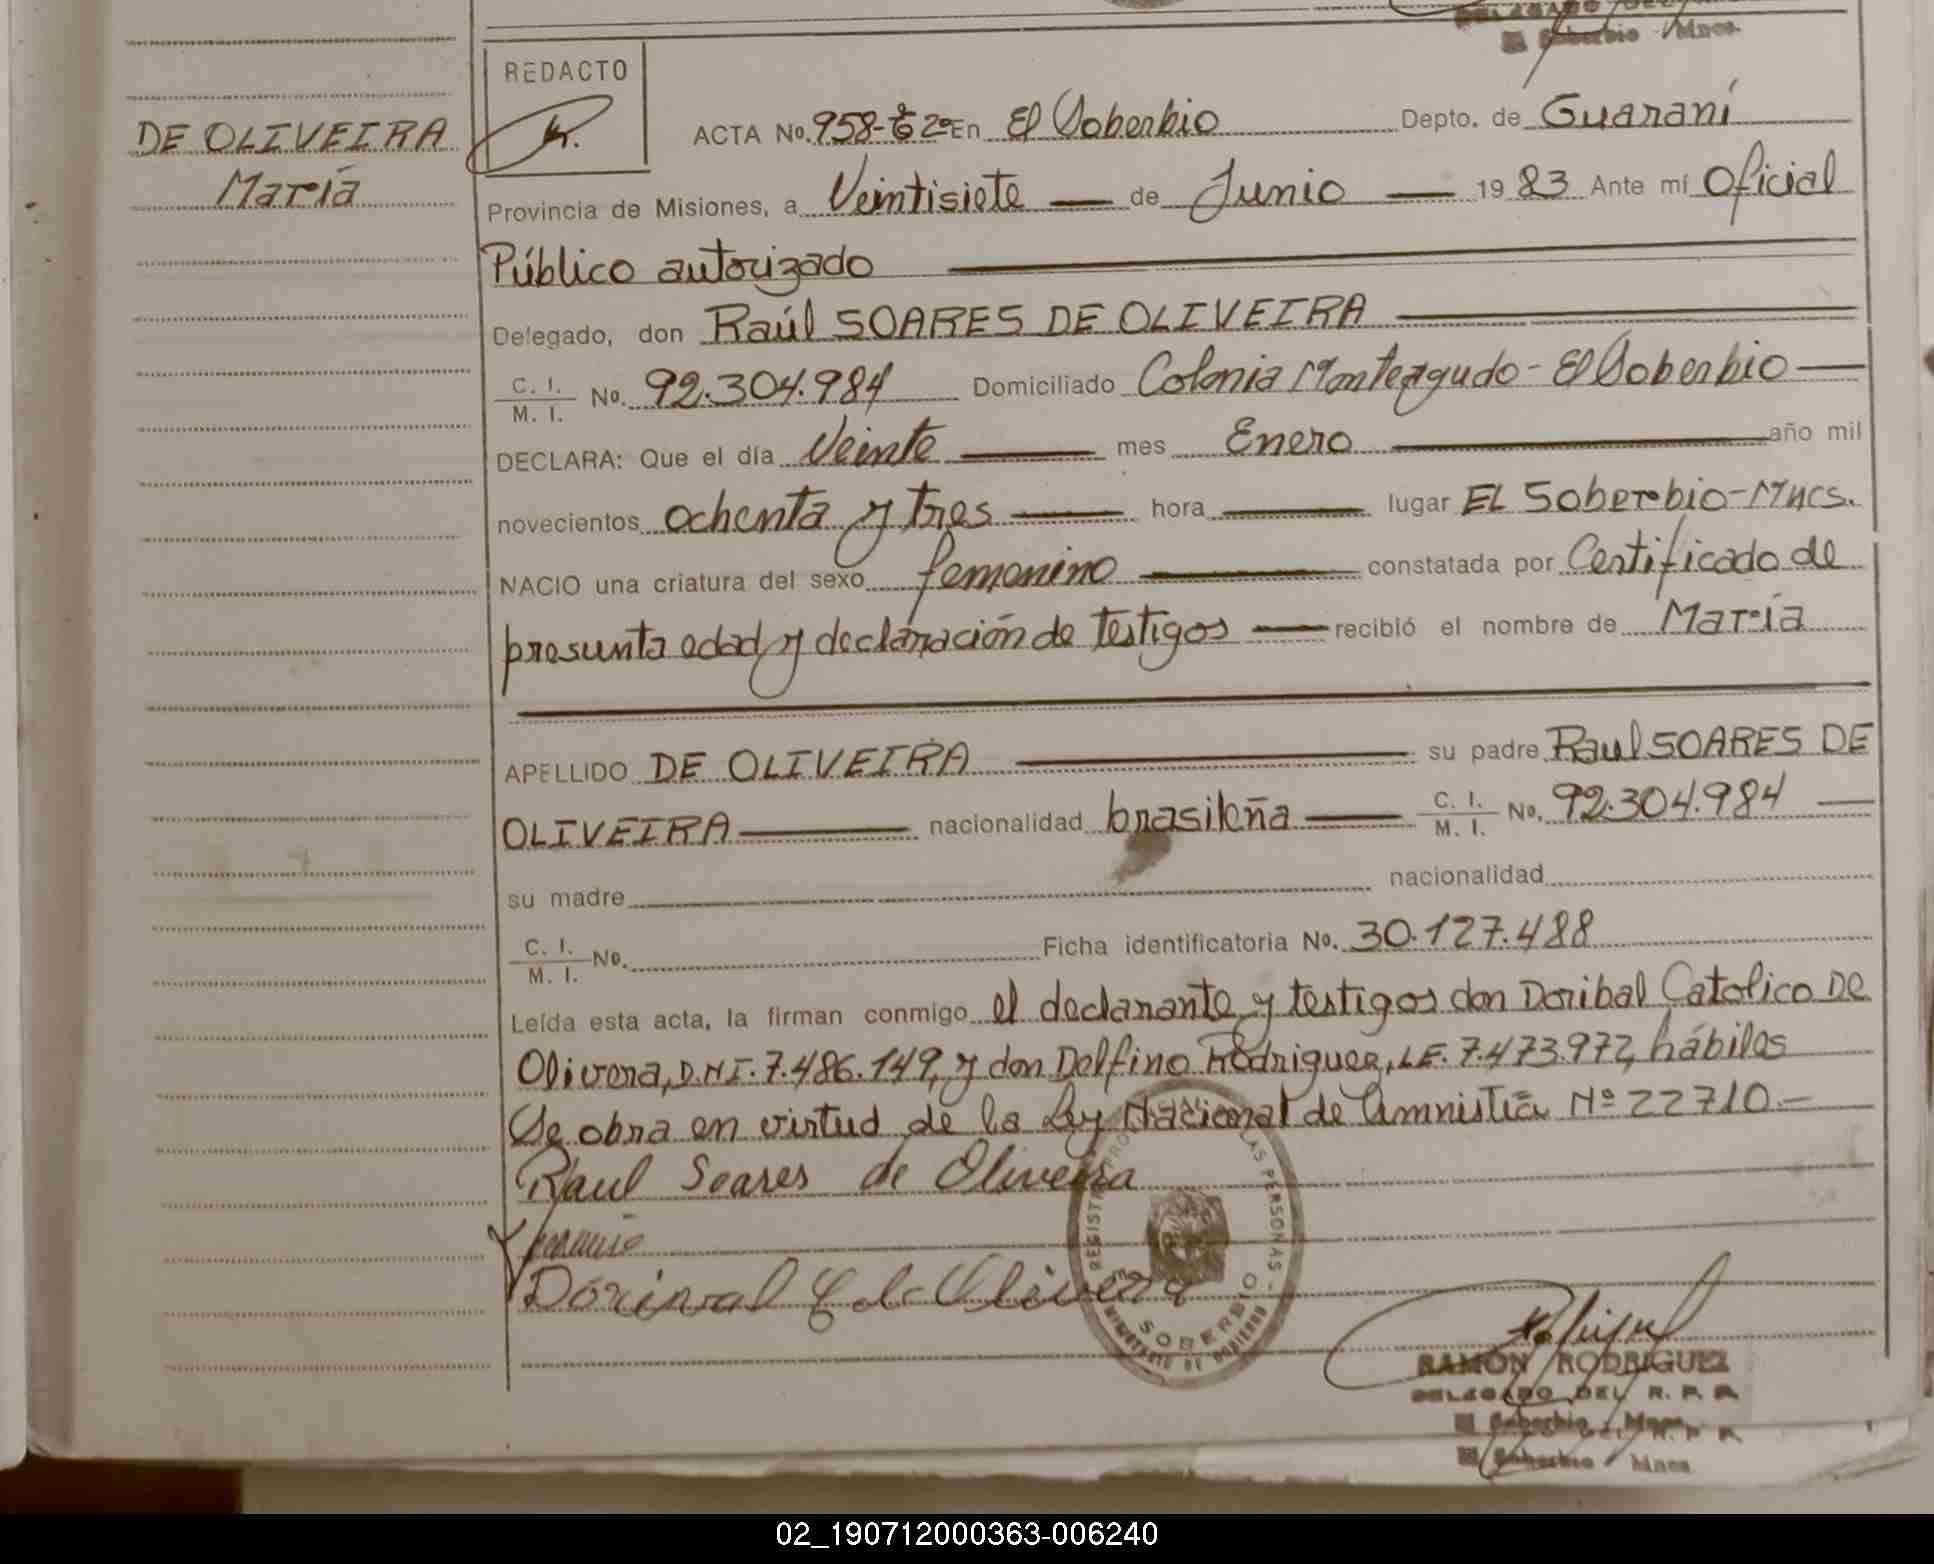 DELEGADO DEL
El Soberbio - Mnes.
REDACTO
DE OLIVEIRA
María
ACTA No. 958-tº 2º En El Soberbio Depto. de Guaraní
Provincia de Misiones, a Veintisiete — de Junio — 19 83 Ante mí Oficial
Público autorizado
Delegado, don Raúl SOARES DE OLIVEIRA
C. I.
M. I. No. 92.304.984 Domiciliado Colonia Monteagudo - El Soberbio —
DECLARA: Que el día Veinte — mes Enero — año mil
novecientos ochenta y tres — hora — lugar EL Soberbio-Mnes.
NACIO una criatura del sexo femenino — constatada por Certificado de
presunta edad y declaración de testigos — recibió el nombre de María
APELLIDO DE OLIVEIRA — su padre Raul SOARES DE
OLIVEIRA — nacionalidad brasileña — C. I.
M. I. No. 92.304.984 —
su madre nacionalidad
C. I.
M. I. No. Ficha identificatoria No. 30.127.488
Leída esta acta, la firman conmigo el declarante y testigos don Doribal Catolico DE
Olivera, D.N.I. 7.486.149, y don Delfino Rodriguez, L.E. 7.473.972, hábiles
Se obra en virtud de la Ley Nacional de Amnistía Nº 22710.-
Raul Soares de Oliveira
Dorinval C de Olivera
REGISTRO PRO LAS PERSONAS
SOBERBIO
MINISTERIO DE GOBIERNO
RAMON RODRIGUEZ
DELEGADO DEL R. P. P.
El Soberbio - Mnes.
R. P. P.
El Soberbio - Mnes
02_190712000363-006240